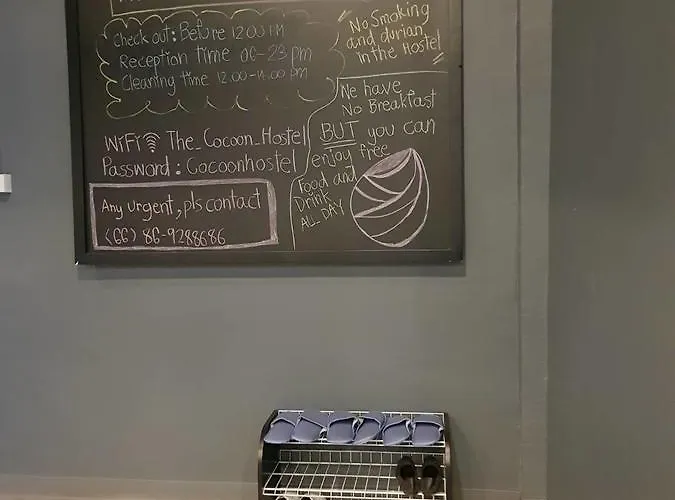 Check out: Before 12.00 PM
Reception time 06-23 pm
Cleaning time 12.00-14.00 pm
No Smoking
and durian
in the Hostel
WiFi The_Cocoon_Hostel
Password: Cocoonhostel
Any urgent, pls contact
(66) 86-9288686
We have
No Breakfast
BUT you can
enjoy free
Food and
Drink
ALL DAY